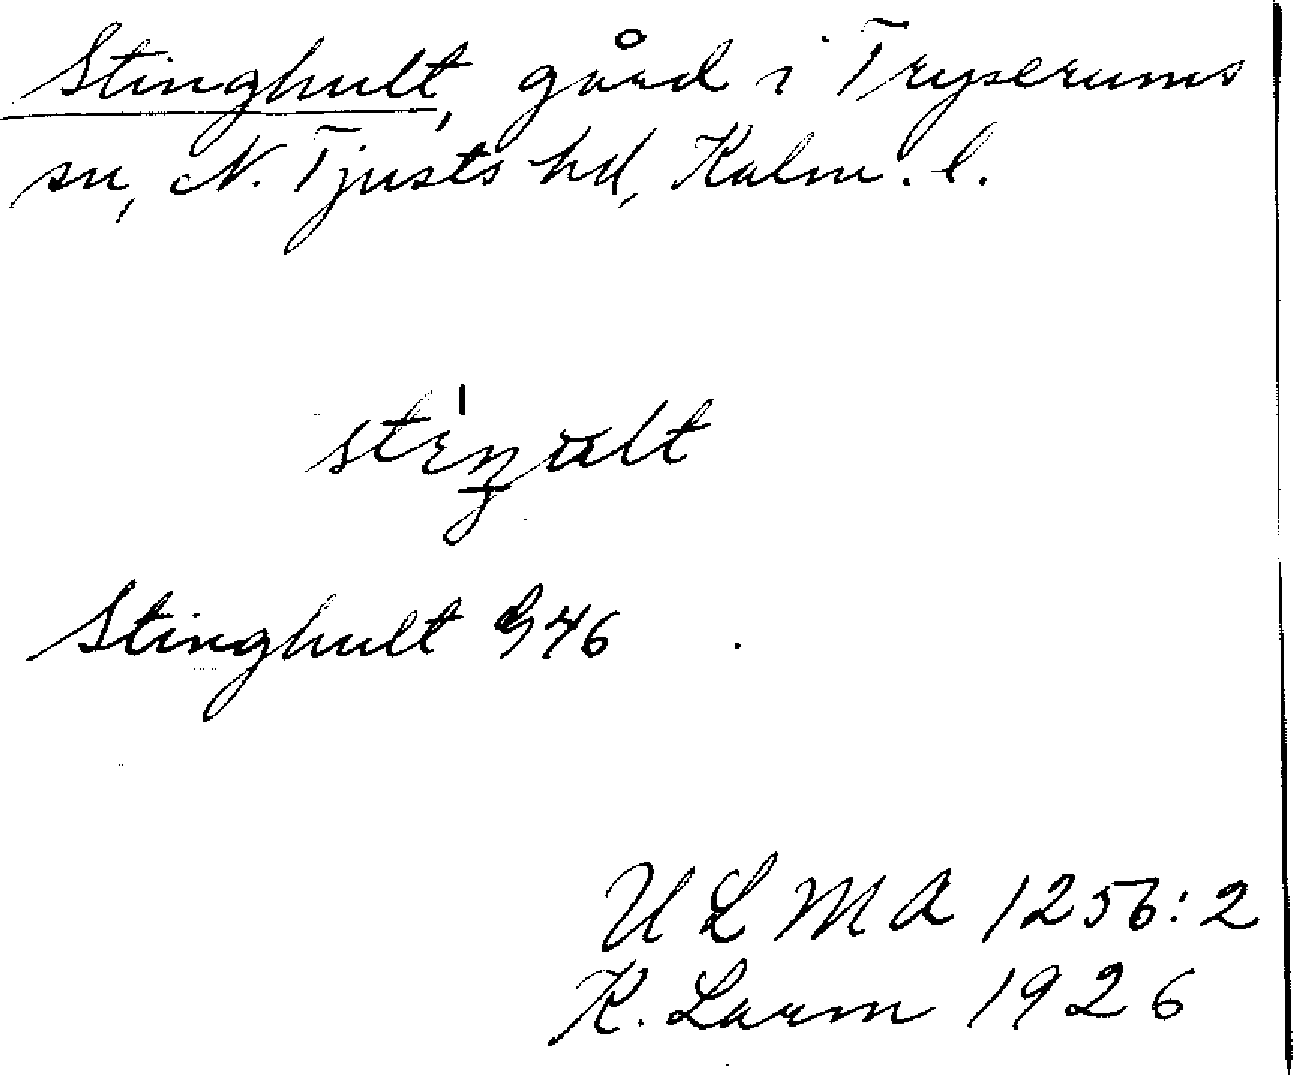 Stinghult, gård i Tryserums
sn, N. Tjusts hd, Kalm. l.
Stinghult G46
ULMA 1256:2
K. Larm 1926